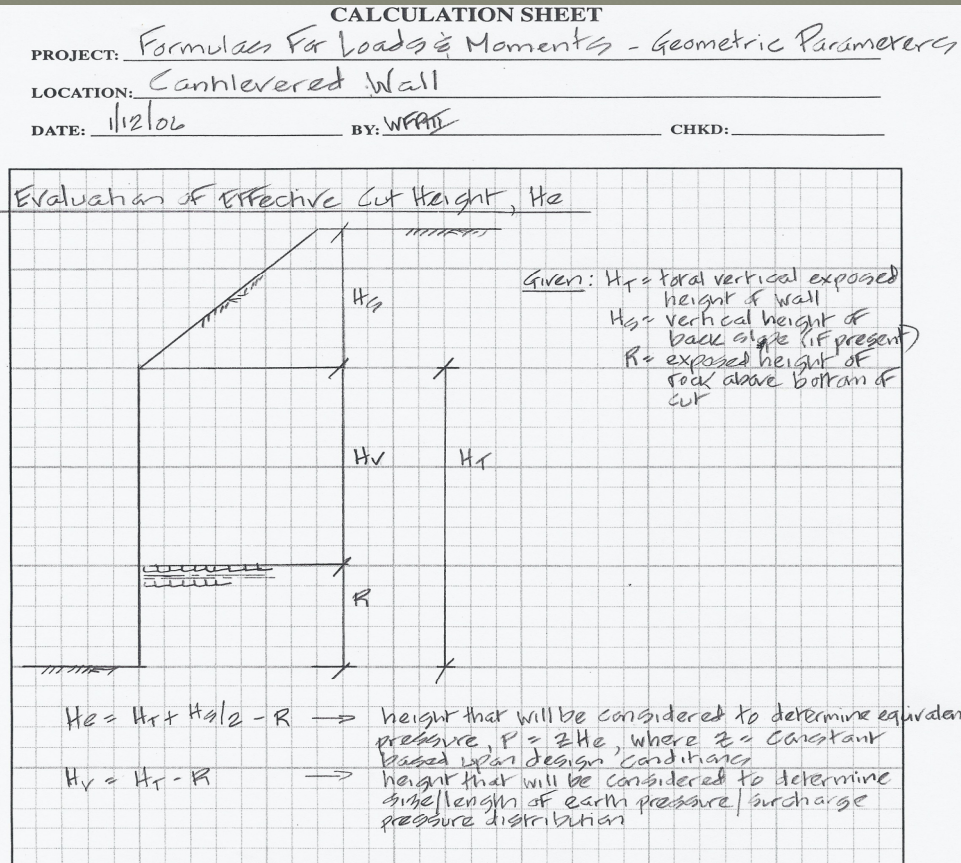 CALCULATION SHEET
PROJECT: Formulaes For Loads & Moments - Geometric Parameters
LOCATION: Cantilevered Wall
DATE: 1/12/06 BY: CHKD:
Evaluation of Effective Cut Height, He
Hs
Given: HT = total vertical exposed
height of wall
Hs = vertical height of
back slope (if present)
R = exposed height of
rock above bottom of
cut
Hv HT
R
He = HT + Hs/2 - R → height that will be considered to determine equivalen
pressure, P = ZHe, where Z = constant
based upon design conditions
Hv = HT - R → height that will be considered to determine
size/length of earth pressure/surcharge
pressure distribution